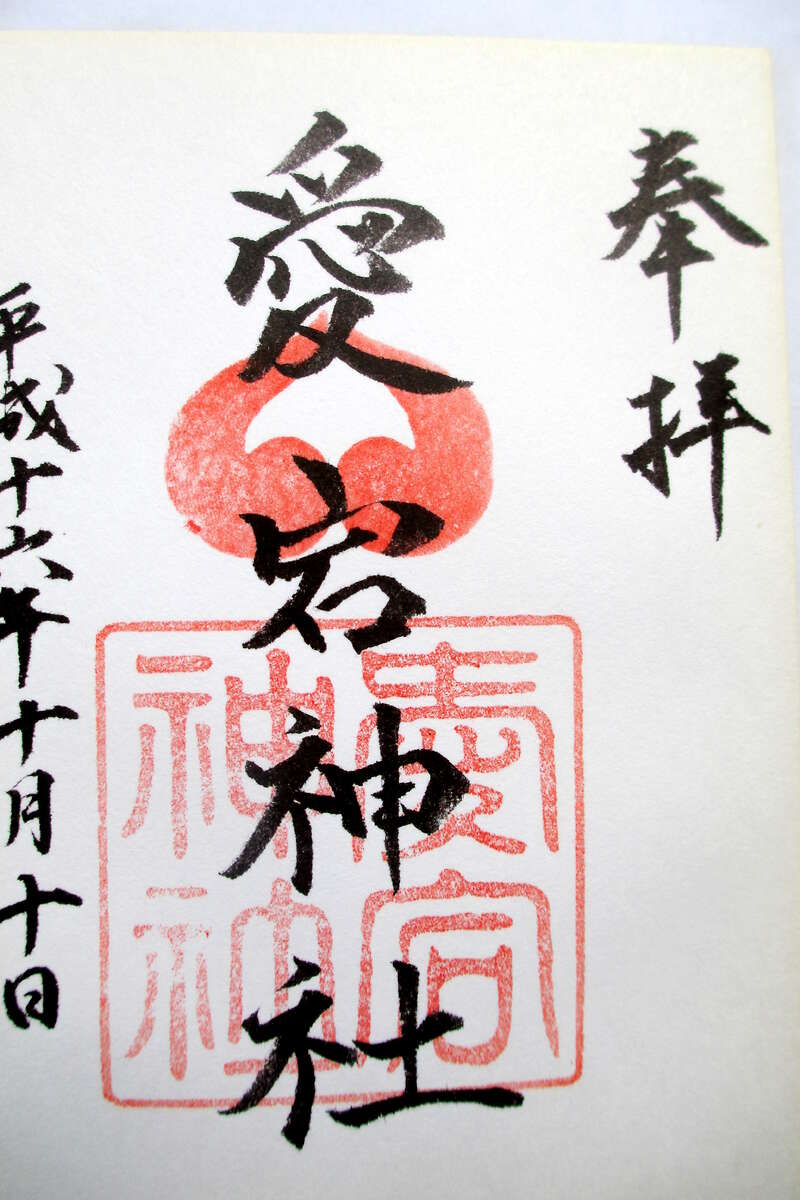 奉拝
愛宕神社
愛宕
神社
平成十六年十月十日